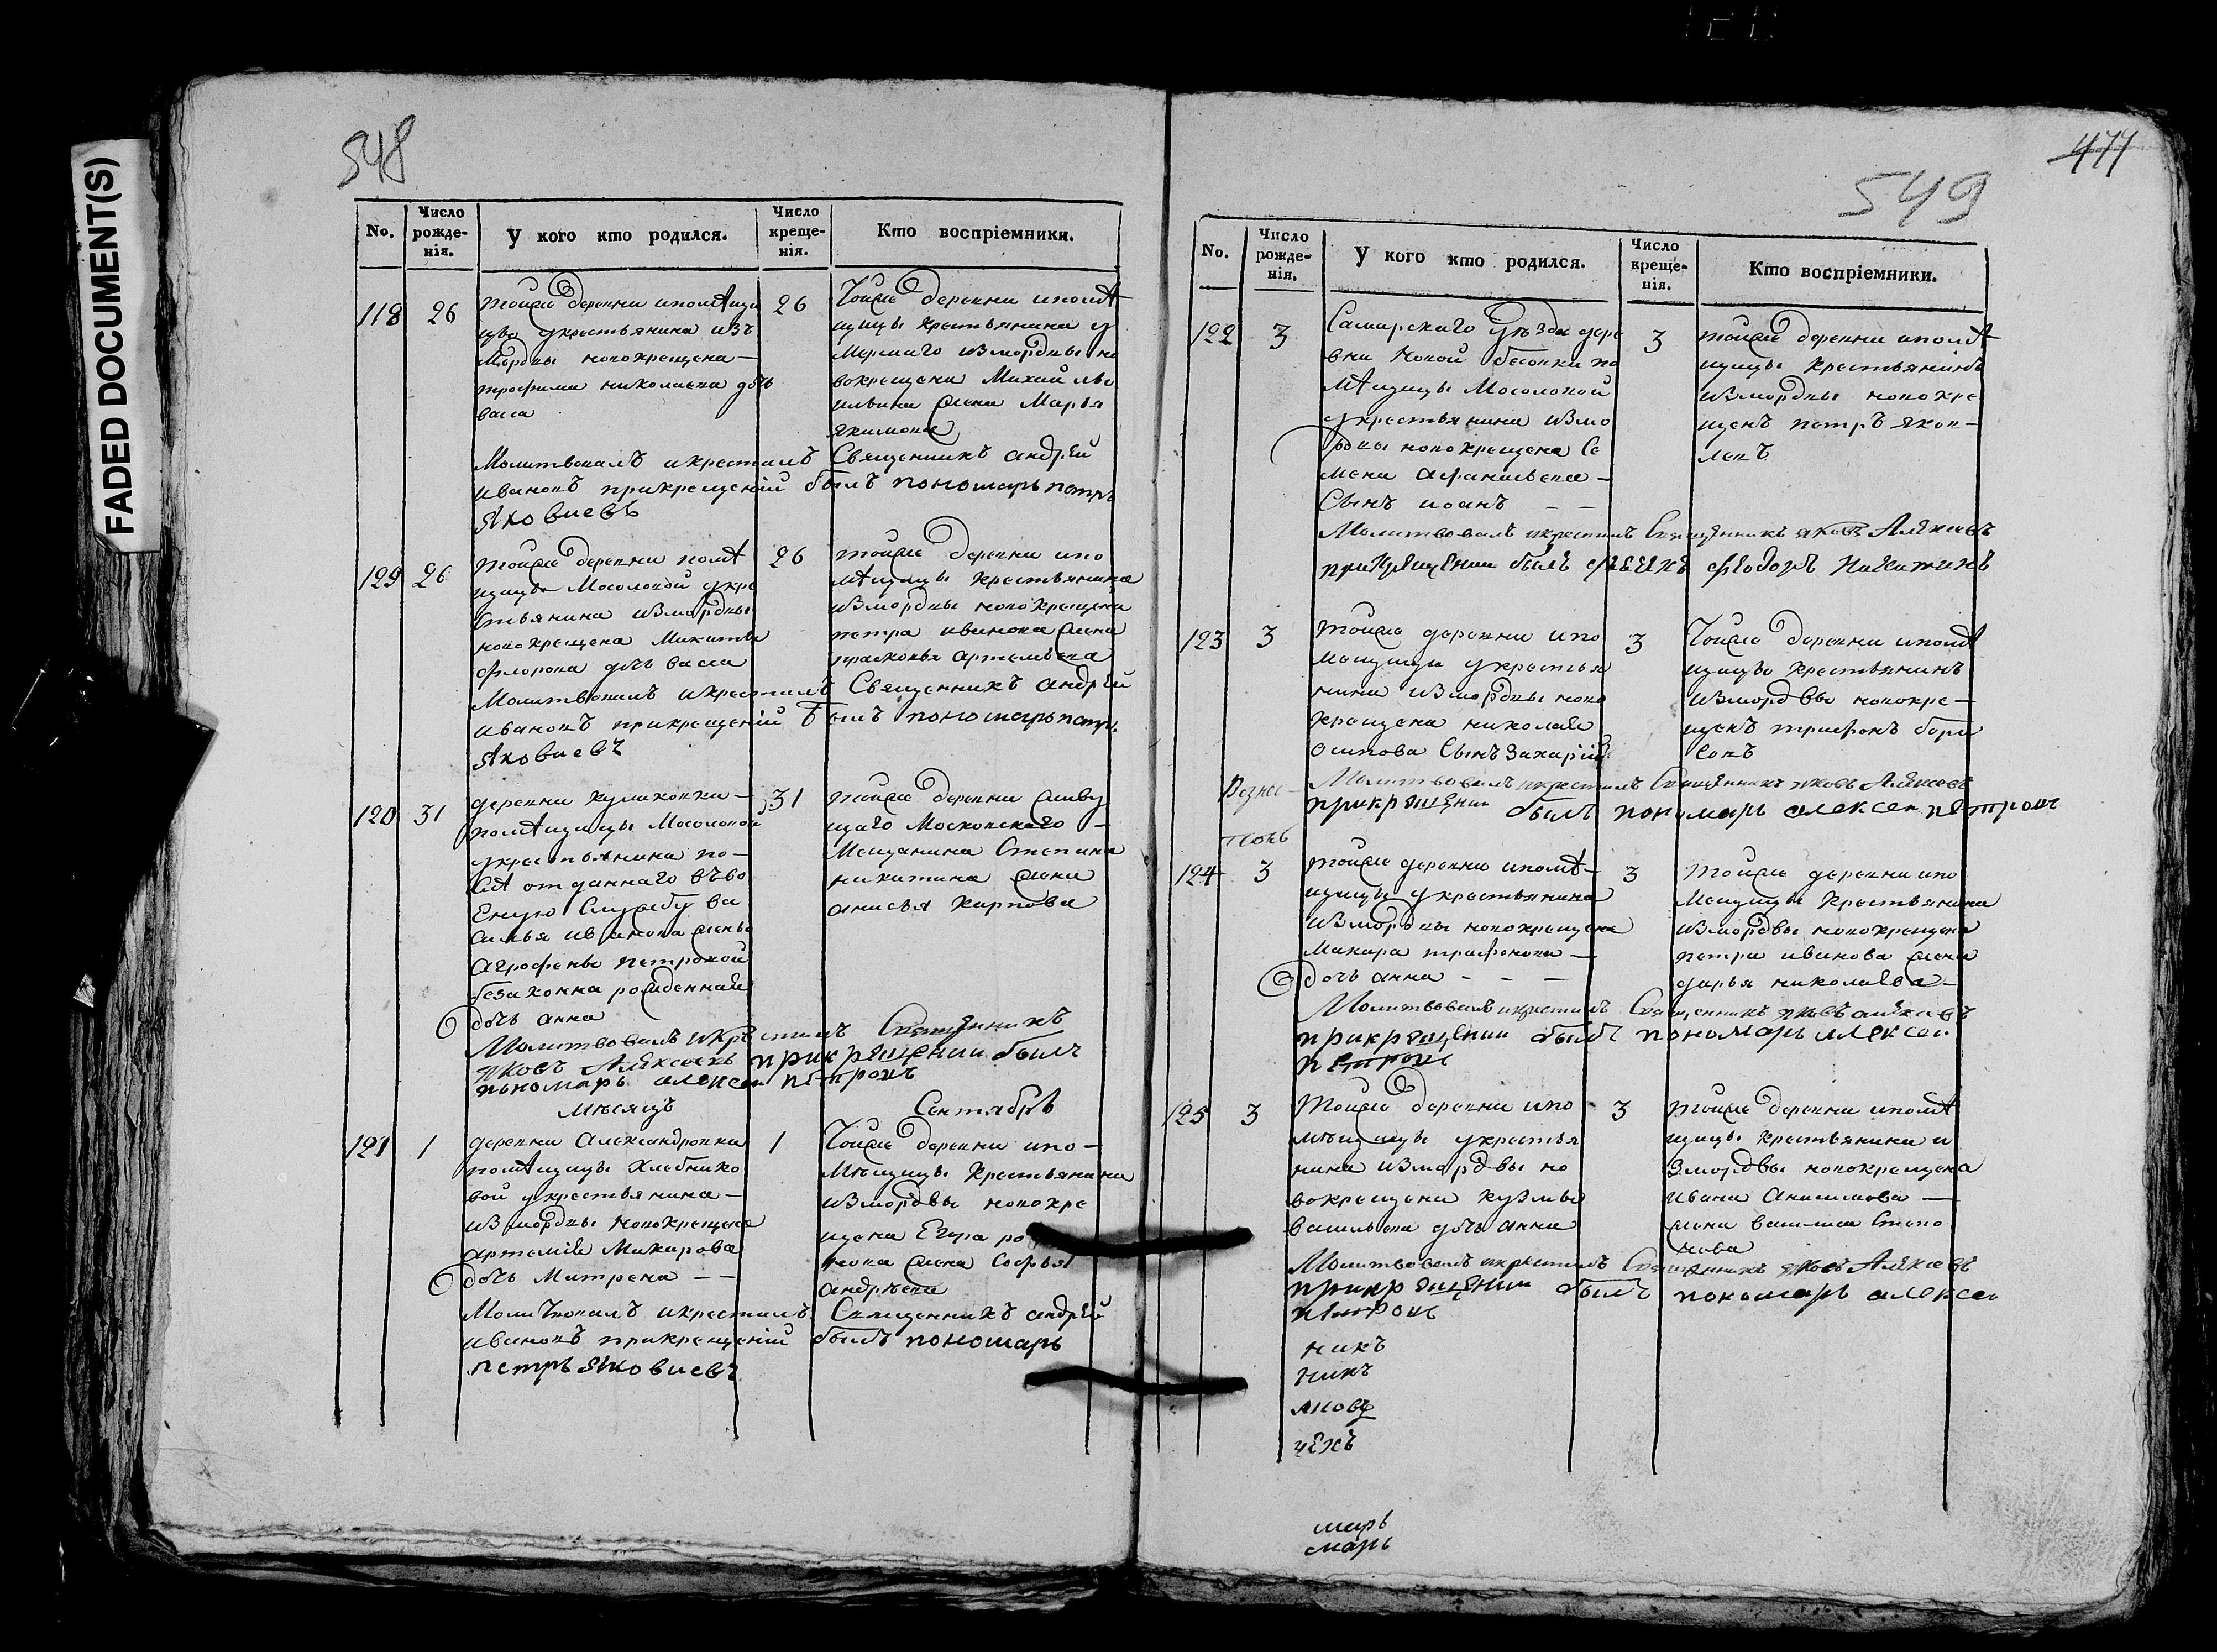 FADED DOCUMENT(S)
548
No.
Число рожде-нія.
У кого кто родился.
Число креще-нія.
Кто воспріемники.
118 26
тойже деревни ипомѣщи
цы укрестьянина изъ
Мордвы новокрещена —
трофима николаева дочь
васа
26
Тойже деревни ипомѣ
щицы крестьянина у
мершаго измордвы но
вокрещена Михайлы
ильина жена Марья
якимова
Молитвовалъ икрестилъ Священникъ андрѣй
ивановъ прикрещеніи былъ пономарь петръ
Яковлевъ
129 26
тойже деревни помѣ
щицы Мосоловой укре
стьянина измордвы
новокрещена Микиты
флорова дочь васса
26
тойже деревни ипо
мѣщицы крестьянина
измордвы новокрещена
петра иванова жена
прасковья артемьева
Молитвовалъ икрестилъ Священникъ андрѣй
ивановъ прикрещеніи былъ пономарь петръ
Яковлевъ
120 31
деревни куликовки —
помѣщицы Мосоловой
укрестьянина по—
слѣ отданнаго въво
Еную Службу ва
силья иванова жены
агрофены петровой
безаконна рожденная
дочь анна
31
тойже деревни живу
щаго Московскаго —
Мещанина Степана
никитина жена
анисья карпова
Молитвовалъ икрестилъ Священникъ
яковъ Алѣксѣевъ прикрѣщении былъ
пономарь алексеи пѣтровъ
Мѣсяцъ Сентябрь
121 1
деревни Александровки
помѣщицы хлебнико
вой укрестьянина —
измордвы новокрещена
артемія Макарова
дочь Матрена — —
1
Тойже деревни ипо—
мѣщицы крестьянина
измордвы новокре
щена Егора
нова жена Софья
андрѣева
Молитвовалъ икрестилъ Священникъ андрѣй
ивановъ прикрещеніи былъ пономарь
петръ Яковлевъ
477
549
No.
Число рожде-нія.
У кого кто родился.
Число креще-нія.
Кто воспріемники.
122 3
Самарскаго Уѣзда дере
вни Новой бесовки по
мѣщицы Мосоловой
укрестьянина измо
рдвы новокрещена Се
мена афанасьева —
Сынъ иоанъ — —
3
тойже деревни ипомѣ
щицы крестьянинъ
измордвы новокре
щенъ петръ яков—
левъ
Молитвовалъ икрестилъ Священникъ яковъ Алѣксѣевъ
прикрѣщении былъ фѣодоръ
123 3
тойже деревни ипо
мещицы укрестья
нина измордвы ново
крещена николая
осипова Сынъ Захарій
3
Тойже деревни ипомѣ
щицы крестьянинъ
измордвы новокре—
щенъ трифонъ бори
совъ
Молитвовалъ икрестилъ Священникъ яковъ Алѣксѣевъ
прикрѣщении былъ пономарь алексеи пѣтровъ
124 3
тойже деревни ипомѣ—
щицы укрестьянина
измордвы новокрещена
Макара трифонова —
дочь анна — — —
3
тойже деревни ипо
Мещицы крестьянина
измордвы новокрещена
петра иванова жена
дарья николаева —
Молитвовалъ икрестилъ Священникъ яковъ алѣксѣевъ
прикрѣщении былъ пономарь алексеи
пѣтровъ
125 3
Тойже деревни ипо —
мѣщицы укрестья
нина измордвы но
вокрещена кузьмы
васильева дочь анна
3
тойже деревни ипомѣ
щицы крестьянина и
змордвы новокрещена
ивана Анисимова —
жена Степа
нова
Молитвовалъ икрестилъ Священникъ яковъ Алѣксѣевъ
прикрѣщении былъ пономарь алексеи
пѣтровъ
никъ
никъ
яковъ
марь
марь